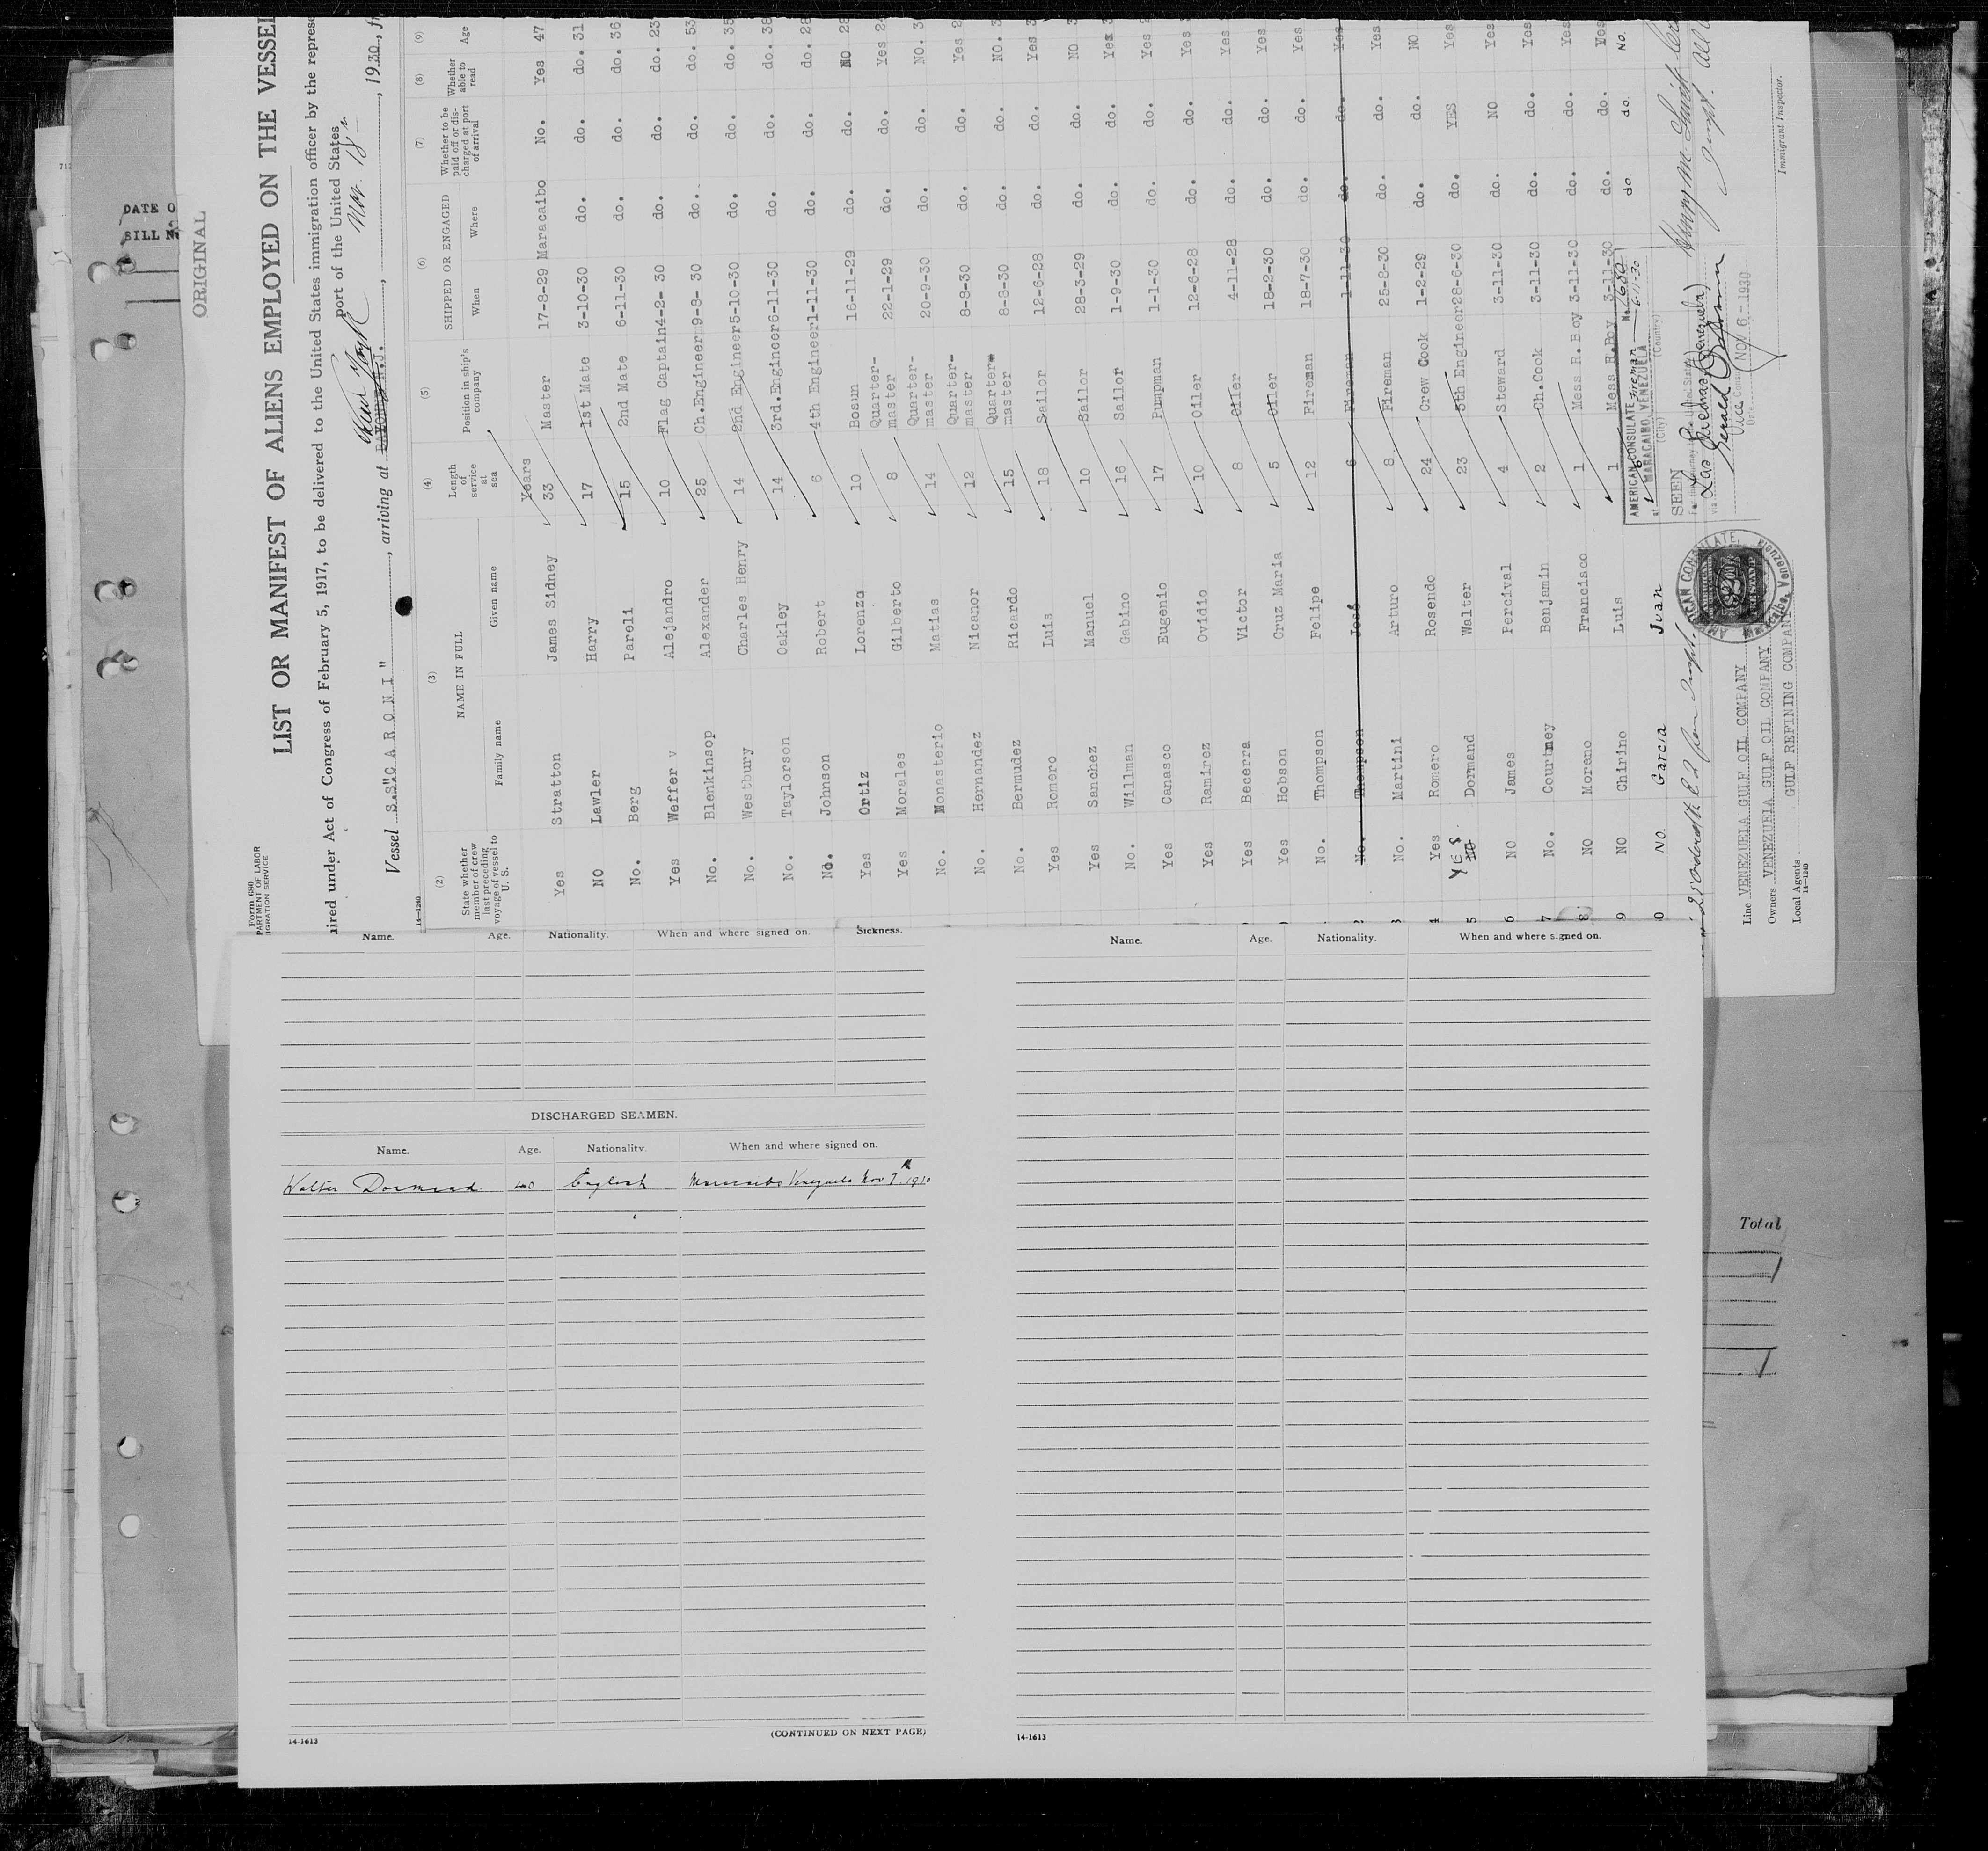 ORIGINAL
Form 680
LIST OR MANIFEST OF ALIENS EMPLOYED ON THE VESSEL
PARTMENT OF LABOR
IGRATION SERVICE
ired under Act of Congress of February 5, 1917, to be delivered to the United States immigration officer by the represe
port of the United States
Vessel S.S. "CARONI", arriving at Nov. 18th, 1930,
14-1240
(2) (3) (4) (5) (6) (7) (8) (9)
State whether member of crew last preceding voyage of vessel to U. S. NAME IN FULL Length of service at sea Position in ship's company SHIPPED OR ENGAGED Whether to be paid off or discharged at port of arrival Whether able to read Age
Family name Given name When Where
Years
Yes Stratton James Sidney 33 Master 17-8-29 Maracaibo No. Yes 47
NO Lawler Harry 17 1st Mate 3-10-30 do. do. do. 31
No. Berg Pareli 15 2nd Mate 6-11-30 do. do. do. 36
Yes Weffer v Alejandro 10 Flag Captain 4-2- 30 do. do. do. 23
No. Blenkinsop Alexander 25 Ch.Engineer 9-8- 30 do. do. do. 53
No. Westbury Charles Henry 14 2nd Engineer 5-10-30 do. do. do. 35
No. Taylorson Oakley 14 3rd.Engineer 6-11-30 do. do. do. 38
No. Johnson Robert 6 4th Engineer 1-11-30 do. do. do. 28
Yes Ortiz Lorenzo 10 Bosun 16-11-29 do. do. NO 28
Yes Morales Gilberto 8 Quarter-master 22-1-29 do. do. Yes
No. Monasterio Matias 14 Quarter-master 20-9-30 do. do. NO.
No. Hernandez Nicanor 12 Quarter-master 8-8-30 do. do. Yes
No. Bermudez Ricardo 15 Quarter-master 8-8-30 do. do. NO.
Yes Romero Luis 18 Sailor 12-6-28 do. do. Yes
Yes Sanchez Manuel 10 Sailor 28-3-29 do. do. NO
No. Willman Gabino 16 Sailor 1-9-30 do. do. Yes
Yes Canasco Eugenio 17 Pumpman 1-1-30 do. do. Yes
Yes Ramirez Ovidio 10 Oiler 12-6-28 do. do. Yes
Yes Becerra Victor 8 Oiler 4-11-28 do. do. Yes
Yes Hobson Cruz Maria 5 Oiler 18-2-30 do. do. Yes
No. Thompson Felipe 12 Fireman 18-7-30 do. do. Yes
2 No. Thompson José 6 Fireman 1-11-30 do. do. Yes
3 No. Martini Arturo 8 Fireman 25-8-30 do. do. Yes
4 Yes Romero Rosendo 24 Crew Cook 1-2-29 do. do. NO
5 NO YES Dormand Walter 23 5th Engineer 28-6-30 do. YES Yes
6 NO James Percival 4 Steward 3-11-30 do. NO Yes
7 No. Courtney Benjamin 2 Ch.Cook 3-11-30 do. do. Yes
8 NO Moreno Francisco 1 Mess R.Boy 3-11-30 do. do. Yes
9 NO Chirino Luis 1 Mess R.Boy 3-11-30 do. do. Yes
0 NO. Garcia Juan 6 Fireman 6-11-30 do. do. NO.
AMERICAN CONSULATE
at MARACAIBO, VENEZUELA
(City) (Country)
SEEN
Las Piedras (Venezuela)
NOV 6 - 1930
Date
AMERICAN CONSULATE
Maracaibo, Venezuela
Line VENEZUELA GULF OIL COMPANY
Owners VENEZUELA GULF OIL COMPANY
Local Agents GULF REFINING COMPANY
14-1240
Immigrant Inspector.
DATE O
BILL N
Name. Age. Nationality. When and where signed on. Sickness.
DISCHARGED SEAMEN.
Name. Age. Nationality. When and where signed on.
Walter Dormand 40 English Maracaibo Venezuela Nov 7th 1930
14-1613 (CONTINUED ON NEXT PAGE)
Name. Age. Nationality. When and where signed on.
14-1613
Total